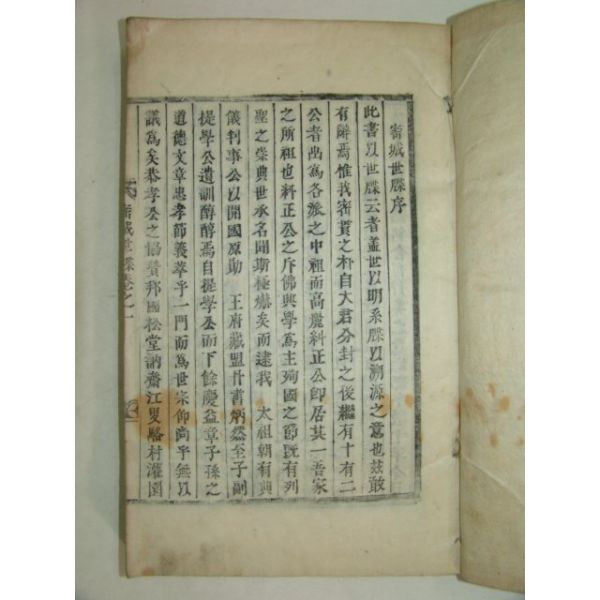 密城世牒序
此書以世牒云者盖世以明系牒以溯源之意也玆敢
有辭焉惟我密貫之朴自大君分封之後繼有十有二
公者出為各派之中祖而高麗料正公卽居其一吾家
之所祖也料正公之斥佛興學為主殉國之節旣有列
聖之崇典世承名聞斯極爀矣而逮我 太祖朝有典
儀判事公以開國原勳 王府藏盟丹書炳然至子副
提學公遺訓醇醇焉自提學公而下餘慶益章子孫之
道德文章忠孝節義萃乎一門而為世宗仰尚乎無以
議為矣恭孝公之協贊邦國松堂訥齋江叟駱村灌園
密城世牒卷之一